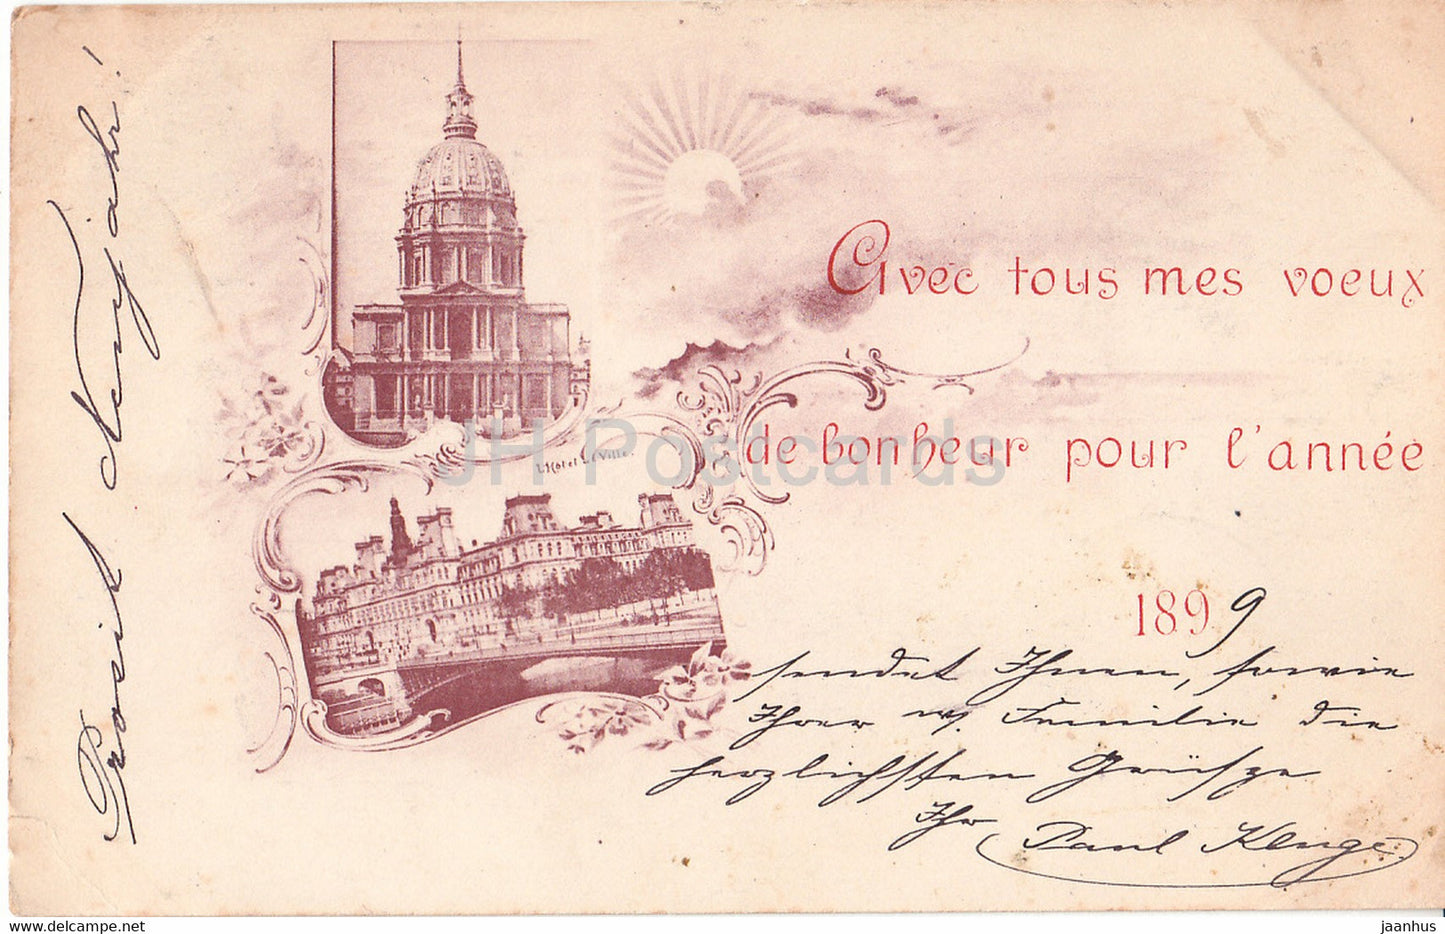 Prosit Neujahr!
Avec tous mes voeux
de bonheur pour l'année
L'Hotel de Ville.
1899
sendet Ihnen, sowie
Ihrer w. Familie die
herzlichsten Grüsze
Ihr Paul Kluge
JH Postcards
jaanhus
delcampe.net